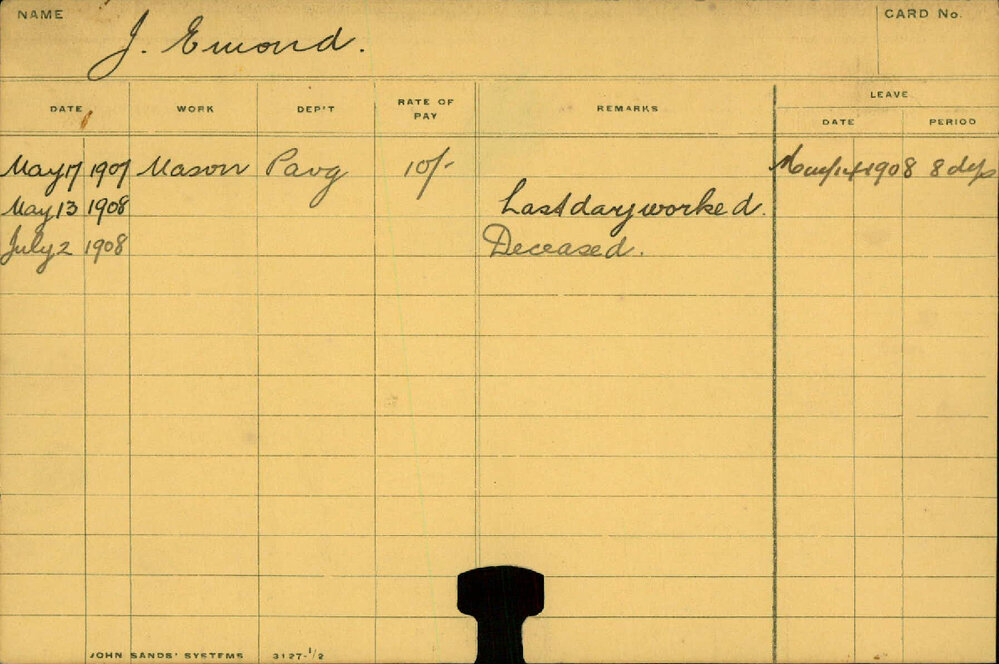 NAME
J. Emond.
CARD No.
DATE WORK DEP'T RATE OF PAY REMARKS LEAVE
DATE PERIOD
May 17 1907 Mason Pavg 10/- May 14 1908 8 dys
May 13 1908 Last day worked.
July 2 1908 Deceased.
JOHN SANDS' SYSTEMS 3127-1/2